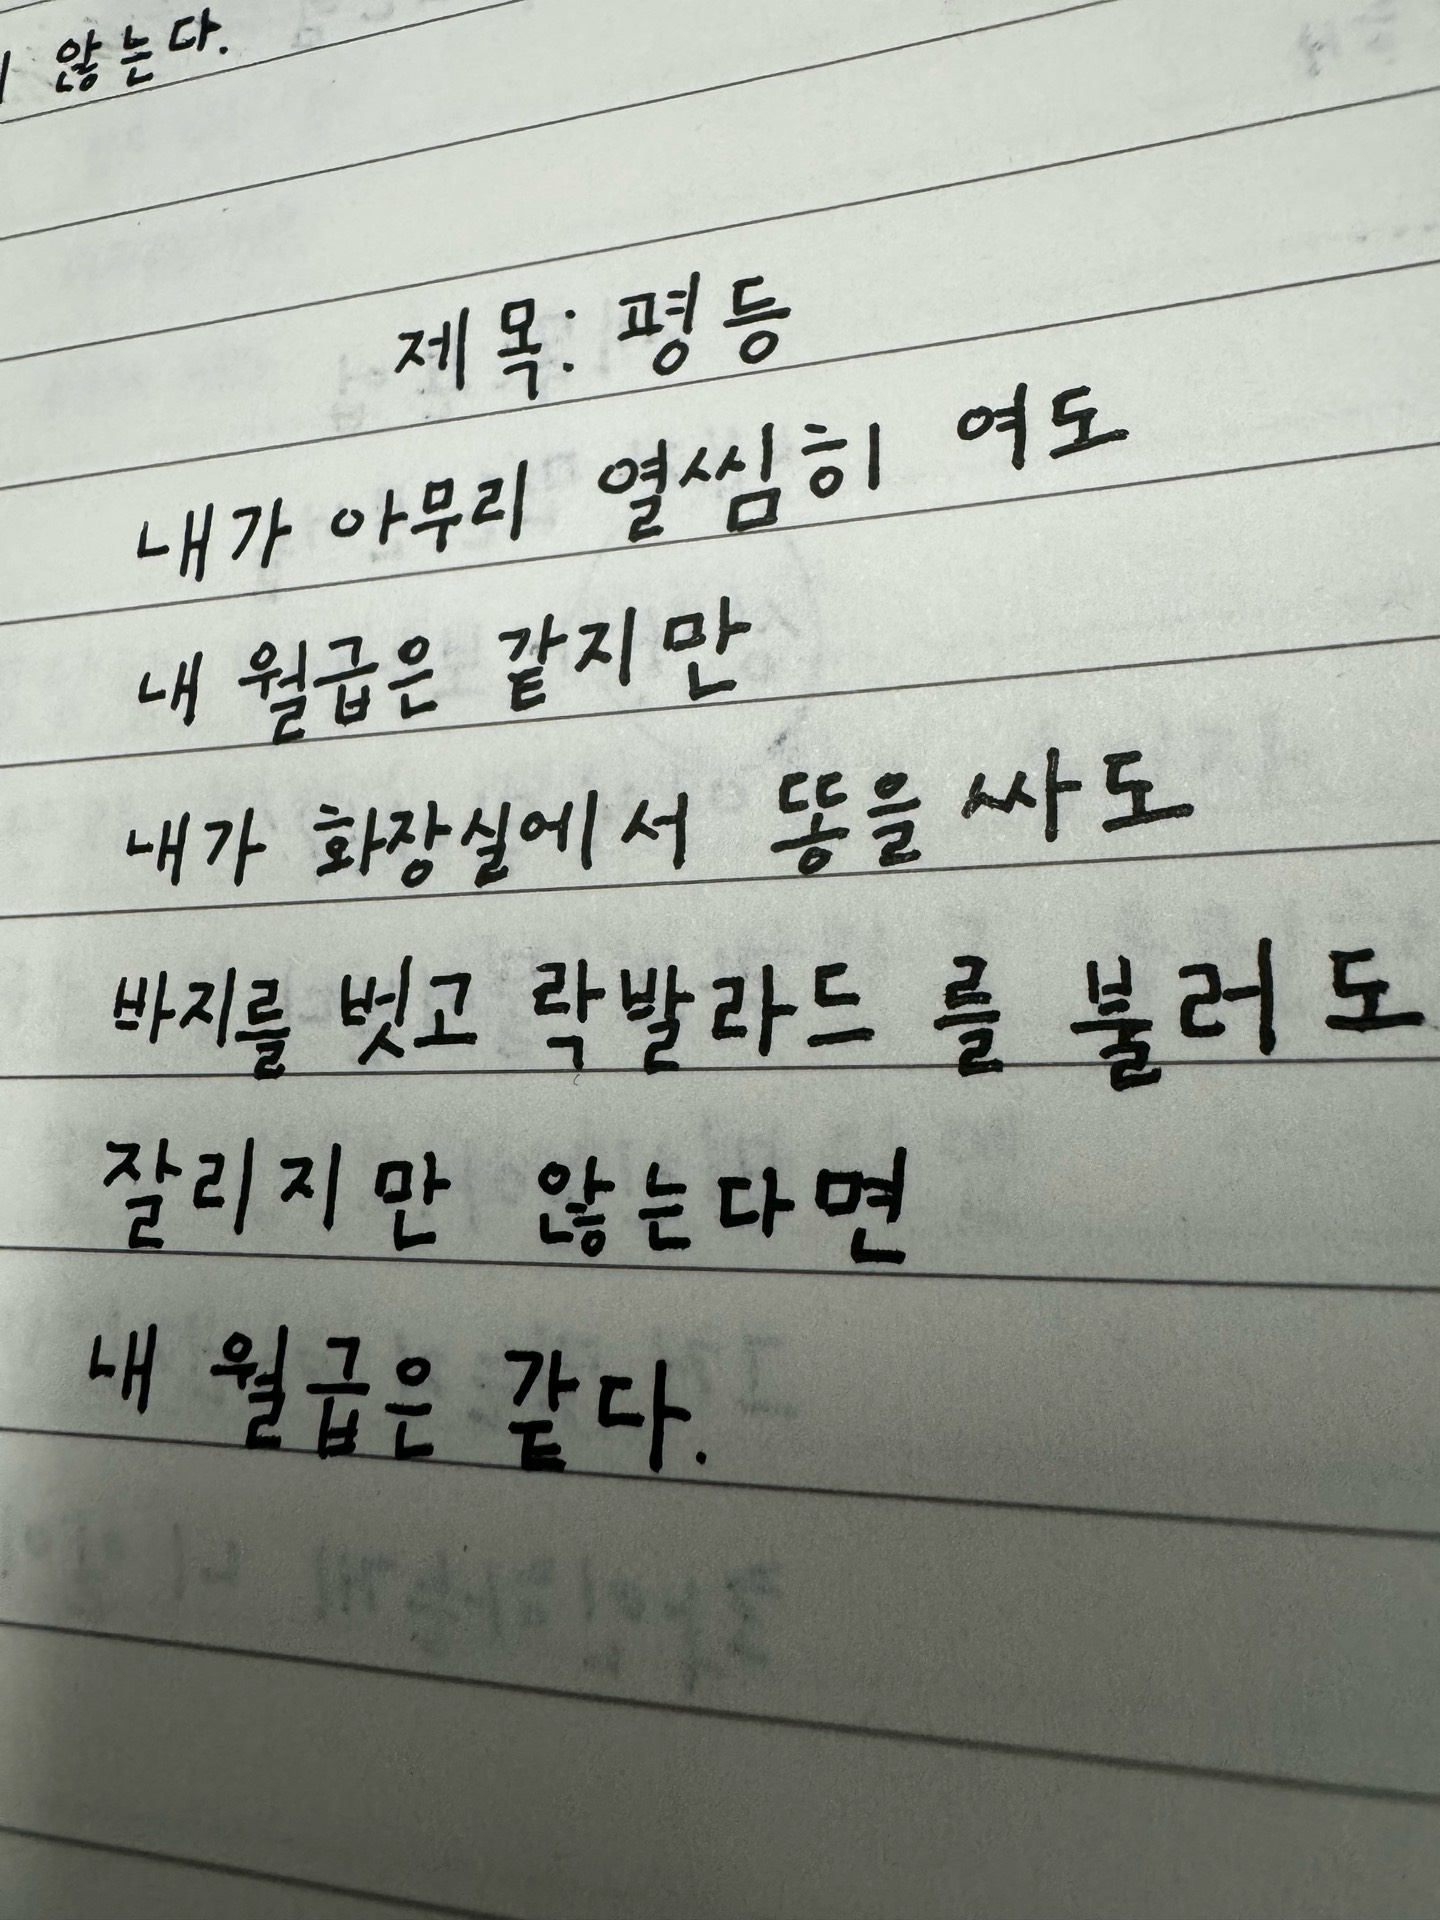 않는다.
제목: 평등
내가 아무리 열씸히 여도
내 월급은 같지만
내가 화장실에서 똥을 싸도
바지를 벗고 락발라드를 불러도
잘리지만 않는다면
내 월급은 같다.